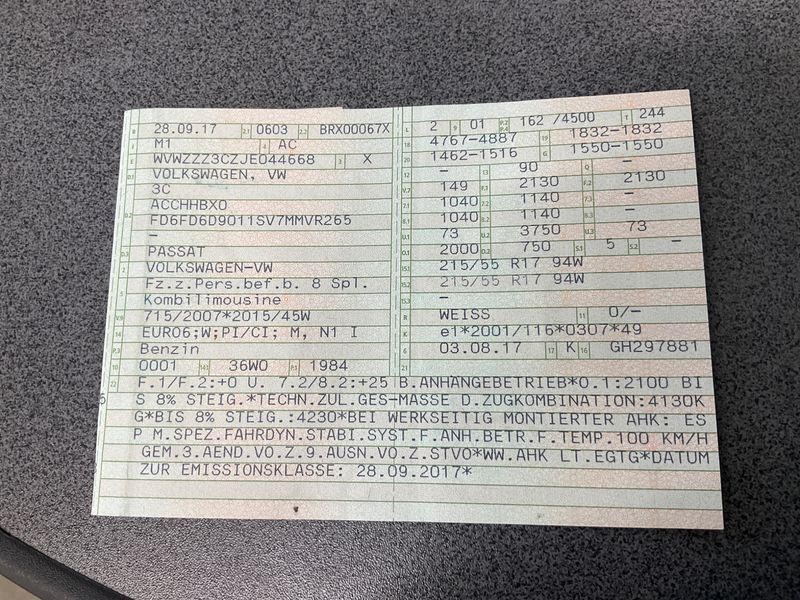 B 28.09.17 2.1 0603 2.2 BRX00067X
J M1 4 AC
E WVWZZZ3CZJE044668 3 X
D.1 VOLKSWAGEN, VW
3C
D.2 ACCHHBX0
FD6FD6D9011SV7MMVR265
–
D.3 PASSAT
2 VOLKSWAGEN-VW
5 Fz.z.Pers.bef.b. 8 Spl.
Kombilimousine
V.9 715/2007*2015/45W
14 EURO6;W;PI/CI; M, N1 I
P.3 Benzin
10 0001 14.1 36W0 P.1 1984
L 2 9 01 P.2 P.4 162 /4500 T 244
18 4767-4887 19 1832-1832
20 1462-1516 G 1550-1550
12 – 13 90 Q –
V.7 149 F.1 2130 F.2 2130
7.1 1040 7.2 1140 7.3 –
8.1 1040 8.2 1140 8.3 –
U.1 73 U.2 3750 U.3 73
O.1 2000 O.2 750 S.1 5 S.2 –
15.1 215/55 R17 94W
15.2 215/55 R17 94W
15.3 –
R WEISS 11 0/–
K e1*2001/116*0307*49
6 03.08.17 17 K 16 GH297881
21
22 F.1/F.2:+0 U. 7.2/8.2:+25 B.ANHÄNGEBETRIEB*O.1:2100 BI
S 8% STEIG.*TECHN.ZUL.GES-MASSE D.ZUGKOMBINATION:4130K
G*BIS 8% STEIG.:4230*BEI WERKSEITIG MONTIERTER AHK: ES
P M.SPEZ.FAHRDYN.STABI.SYST.F.ANH.BETR.F.TEMP.100 KM/H
GEM.3.AEND.VO.Z.9.AUSN.VO.Z.STVO*WW.AHK LT.EGTG*DATUM
ZUR EMISSIONSKLASSE: 28.09.2017*